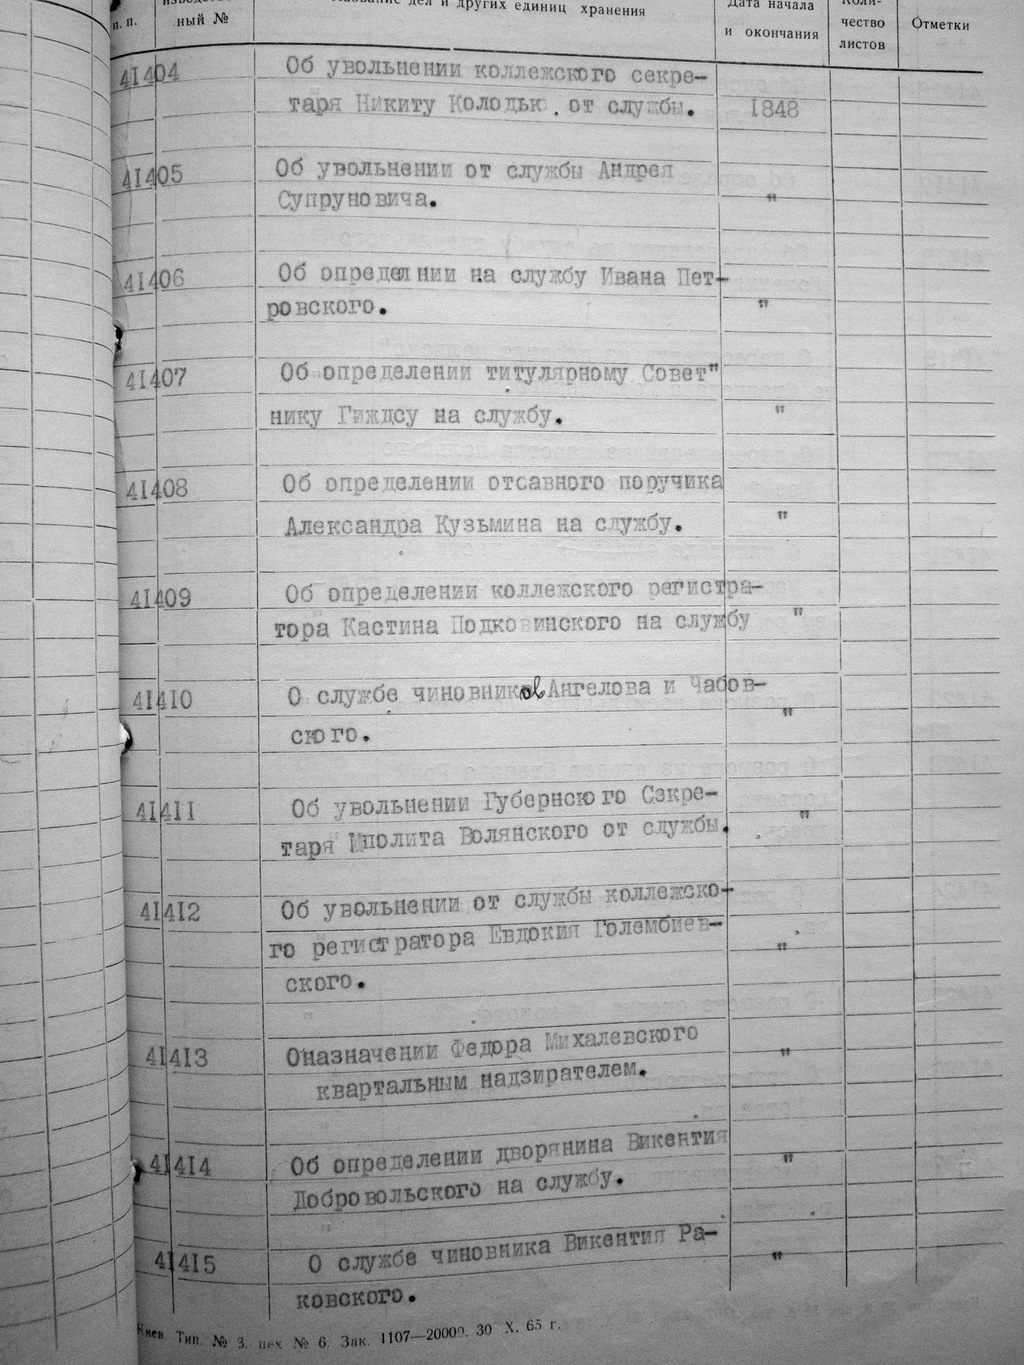 п. п.
ный №
Название дел и других единиц хранения
Дата начала
и окончания
Коли-
чество
листов
Отметки
41404 Об увольнении коллежского секре-
таря Никиту Колодью. от службы. 1848
41405 Об увольнении от службы Андрея
Супруновича. "
41406 Об определнии на службу Ивана Пет-
ровского. "
41407 Об определении титулярному Совет"
нику Гиждсу на службу. "
41408 Об определении отсавного поручика
Александра Кузьмина на службу. "
41409 Об определении коллежского регистра-
тора Кастина Подковинского на службу "
41410 О службе чиновников Ангелова и Чабов-
ского. "
41411 Об увольнении Губернского Сэкре-
таря Иполита Волянского от службы. "
41412 Об увольнении от службы коллежско-
го регистратора Евдокия Голембиев-
ского. "
41413 Оназначении Федора Михалевского "
квартальным надзирателем.
41414 Об определении дворянина Викентия "
Добровольского на службу.
41415 О службе чиновника Викентия Ра- "
ковского.
Киев. Тип. № 3. цех № 6. Зак. 1107—20000. 30 X. 65 г.